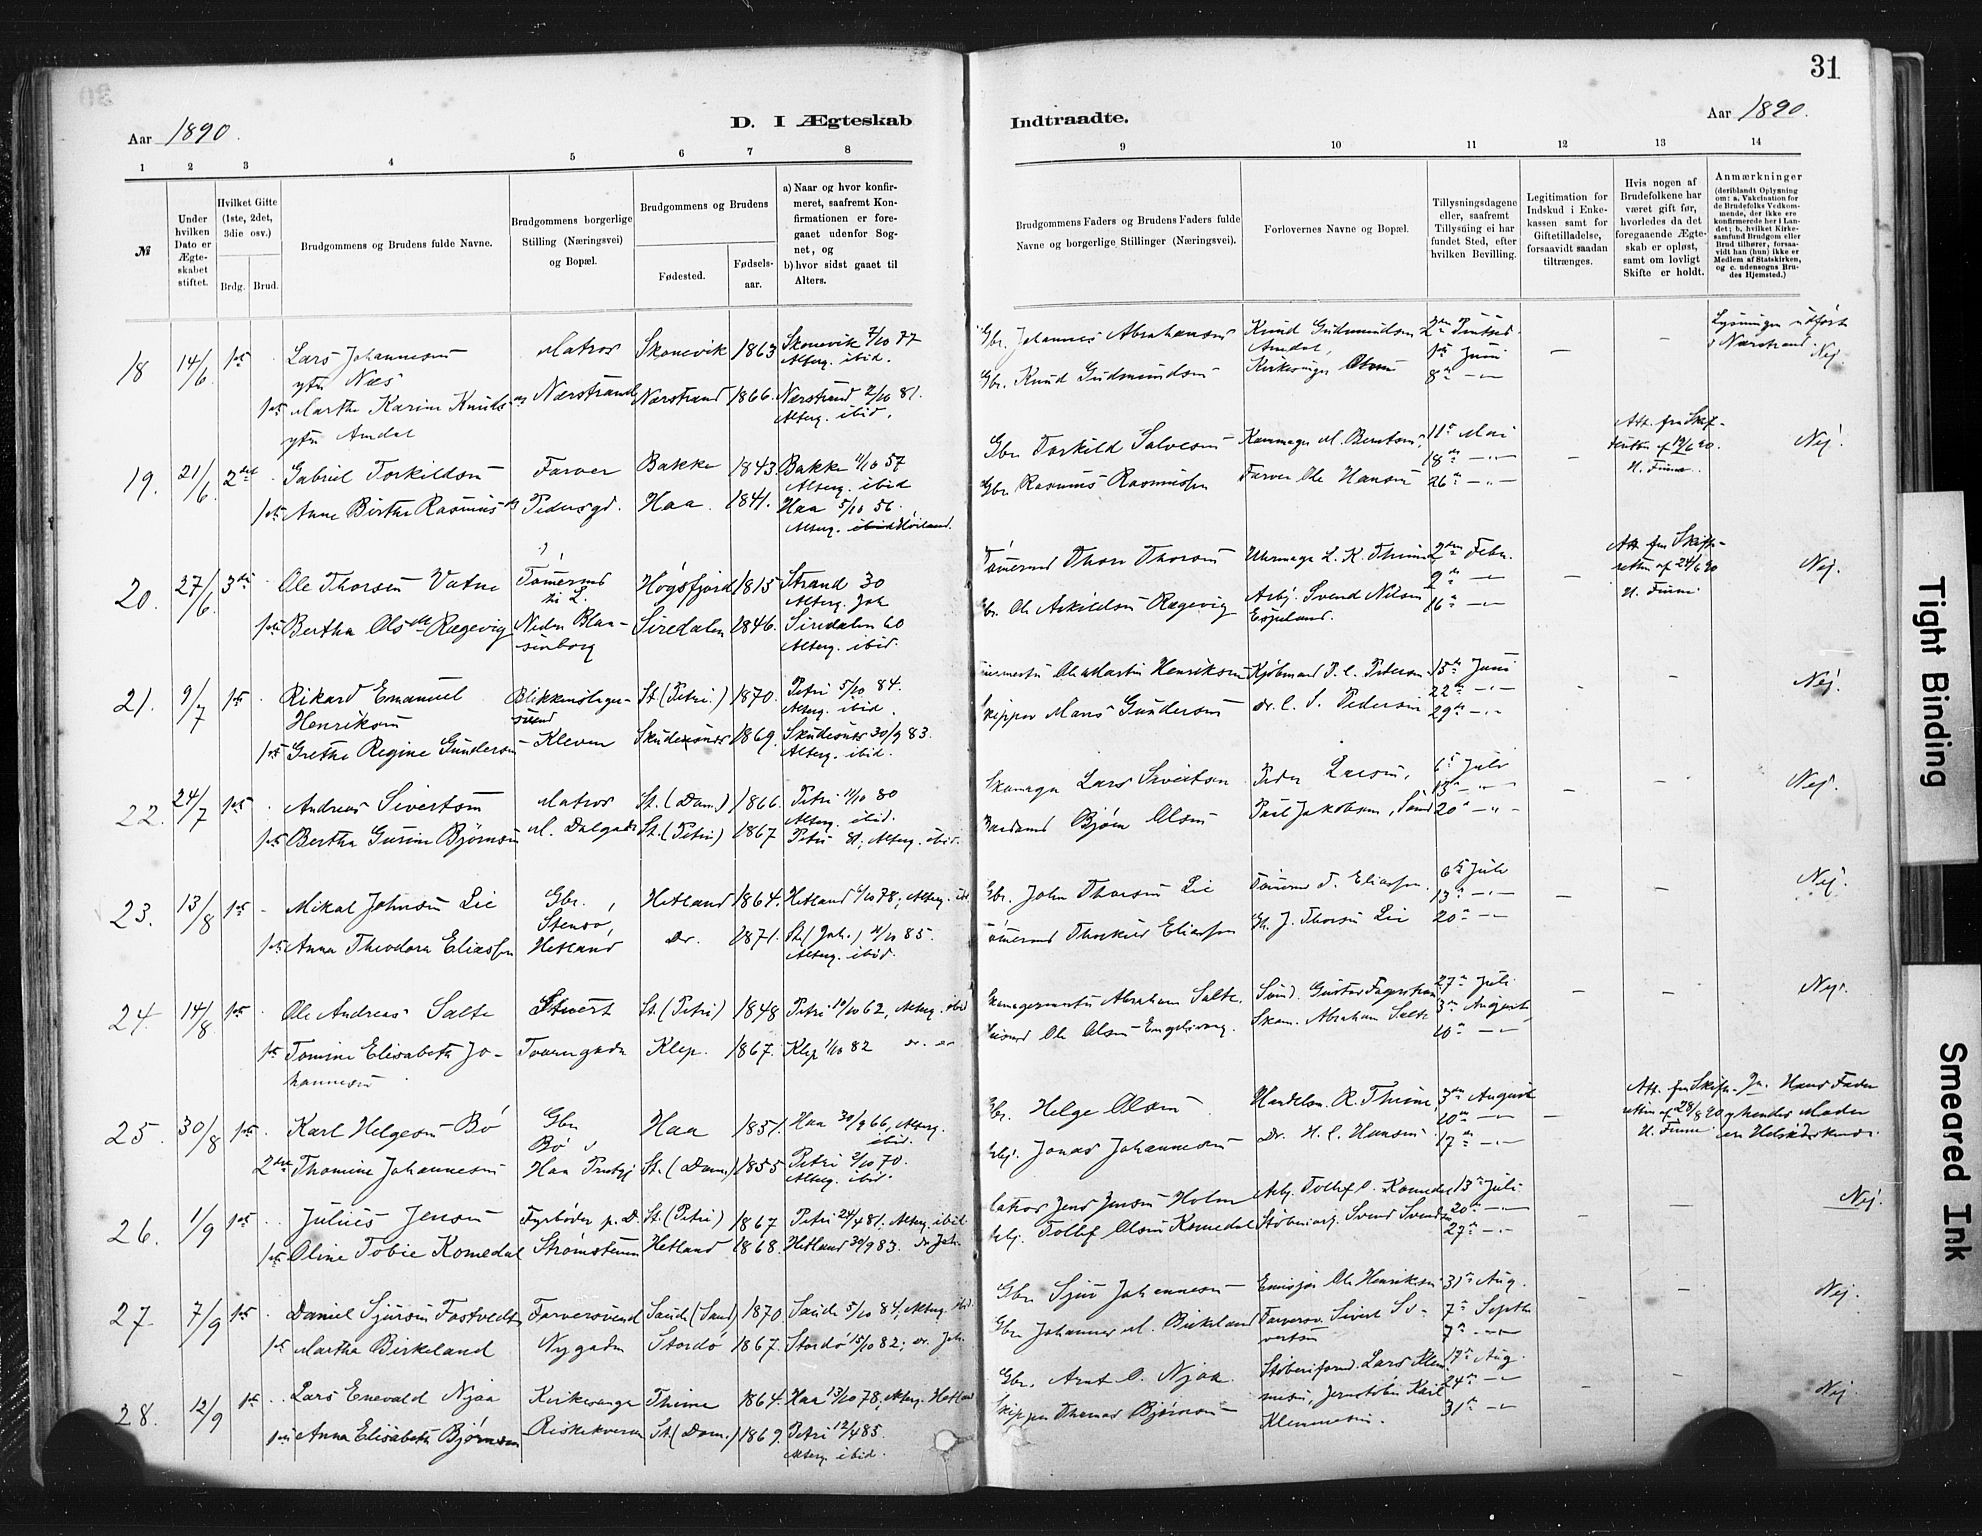 30
31
Aar 1890.
D. I Ægteskab
Indtraadte.
Aar 1890.
1 2 3 4 5 6 7 8
9 10 11 12 13 14
№
Under hvilken Dato er Ægteskabet stiftet.
Hvilket Gifte (1ste, 2det, 3die osv.)
Brdg. Brud.
Brudgommens og Brudens fulde Navne.
Brudgommens borgerlige Stilling (Næringsvei) og Bopæl.
Brudgommens og Brudens
Fødested.
Fødselsaar.
a) Naar og hvor konfirmeret, saafremt Konfirmationen er foregaaet udenfor Sognet, og
b) hvor sidst gaaet til Alters.
Brudgommens Faders og Brudens Faders fulde Navne og borgerlige Stillinger (Næringsvei).
Forlovernes Navne og Bopæl.
Tillysningsdagene eller, saafremt Tillysning ei har fundet Sted, efter hvilken Bevilling.
Legitimation for Indskud i Enkekassen samt for Giftetilladelse, forsaavidt saadan tiltrænges.
Hvis nogen af Brudefolkene har været gift før, hvorledes da det foregaaende Ægteskab er opløst, samt om lovligt Skifte er holdt.
Anmærkninger
(deriblandt Oplysning om: a. Vakcination for de Brudefolks Vedkommende, der ikke ere konfirmerede her i Landet; b. hvilket Kirkesamfund Brudgom eller Brud tilhører, forsaavidt han (hun) ikke er Medlem af Statskirken, og c. udensogns Brudes Hjemsted.)
18 14/6 1ste Lars Johannesen Matros Skonevik 1863 Skonevik 7/10 77
ytre Næs Alterg. ibid.
1ste Marthe Karine Knuds Nærstrand Nærstrand 1866. Nærstrand 2/10 81.
ytre Amdal Alterg. ibid.
Gbr. Johannes Abrahamsen Knud Gudmundsen 2den Pintsed.
Amdal, 1ste Juni
Gbr. Knud Gudmundsen Kirkesanger Olsen 8de — " —
Lysningen udført i Nærstrand. Nej.
19. 21/6 2det Gabriel Torkildsen Farver Bakke 1843. Bakke 11/10 57
Alterg. ibid
1ste Anne Birthe Rasmusd. Pedersgd. Haa 1841. Haa 5/10 56.
Alterg. Høiland.
Gbr. Torkild Salvesen Kammager M. Berntsen, 11te Mai
18de — " —
Gbr. Rasmus Rasmussen Farver Ole Hansen 26de — " —
Att. fra Skifteretten af 19/6 90. H. Finne. Nej.
20. 27/6 3die Ole Thorsen Vatne Tømermd Høgsfjord 1815 Strand 30
til L. Alterg. Joh
1ste Bertha Olsdtr Rægevig Nedre Blaasenborg Siredalen 1846. Siredalen 60
Alterg. ibid.
Tømermd Thore Thorsen Uhrmager L. K. Thime 2den Febr.
9de — " —
Gbr. Ole Askildsen Rægevig Arbj. Svend Nilsen Espeland. 16de — " —
Att. fra Skifteretten af 24/6 90 H. Finne Nej.
21. 9/7 1ste Rikard Emanuel Blikkenslagersvend St. (Petri.) 1870. Petri 5/10 84.
Henriksen Alterg. ibid.
1ste Grethe Regine Gundersen Kleven Skudesnes 1869. Skudesnes 30/9 83.
Alterg. ibid.
Ole Martin Henriksen Kjøbmand P. C. Pedersen 15de Juni
22de — " —
Skipper Mons Gundersen dr. C. S. Pedersen 29de — " —
Nej.
22. 24/7 1ste Andreas Sivertsen Matros St. (Dom.) 1866. Petri 11/10 80
Alterg. ibid.
1ste Bertha Gurine Bjørnsen M. Dalgade St. (Petri) 1867 Petri 81, Alterg. ibid.
Skomager Lars Sivertsen Peder Larsen, 6te Juli
13de — " —
Bjørn Olsen Paul Jakobsen, Sand 20de — " —
Nej.
23. 13/8 1ste Mikal Johnsen Lie Gbr. Hetland 1864. Hetland 6/10 78, Alterg. ibid.
Stensø,
1ste Anna Theodora Eliassen Hetland Do. 1871. St (Joh.) 4/10 85.
Alterg. ibid.
Gbr. John Thorsen Lie Tømermd T. Eliassen 6te Juli
13de — " —
Tømermd Thorkild Eliassen Gbr. J. Thorsen Lie 20de — " —
Nej.
24 14/8 1ste Ole Andreas Salte Stuert St. (Petri) 1848 Petri 12/10 62, Alterg. ibid
1ste Tomine Elisabeth Johannesen Tvergade Klep. 1867. Klep 1/10 82 do. do
Skomagermester Abraham Salte. Svend. Gustav Fagerstrøm 27de Juli
3die August
Ole Olsen Engelsvang. Skom. Abraham Salte 10de — " —
Nej.
25. 30/8 1ste Karl Helgesen Bø Gbr Haa 1851. Haa 30/9 66, Alterg.
Bø, ibid.
2den Thomine Johannesen Haa Prstgj St. (Dom.) 1855 Petri 2/10 70.
Alterg. ibid.
Gbr. Helge Olsen Handelsm. O. Thime, 3die August
10de — " —
Arbj. Jonas Johannesen Do. H. C. Hansen 17de — " —
Att. fra Skifteretten af 28/8 90 H. Finne
Ja. Hans Fader og hendes Moder ere Halvsødskende.
26. 1/9 1ste Julius Jensen Fyrbøder p. D. St. (Petri) 1867 Petri 24/4 81. Alterg. ibid
1ste Oline Tobie Komedal Strømstenen Hetland 1868. Hetland 30/9 83. do Joh.
Matros Jens Jensen Holm Arbj. Tollef O. Komedal 13de Juli
20de — " —
Arbj. Tollef Olsen Komedal Støberiarb. Svend Svendsen 27de — " —
Nej.
27. 7/9 1ste Daniel Sjursen Fostvedt Farversvend Saude (Sand) 1870. Saude 5/10 84, Alterg. ibid.
1ste Martha Birkeland Nygaden Stordø 1867. Stordø 15/10 82; do. Joh.
Gbr Sjur Johannesen Emissær Ole Henriksen 31te Aug.
7de Septbr
Gbr Johannes M. Birkeland Farversv. Sivert Sivertsen 7de — " —
Nej.
28. 12/9 1ste Lars Enevald Njaa Kirkesanger Thime 1864. Haa 13/10 78, Alterg. Hetland
1ste Anna Elisabeth Bjørnsen Riskekvern St. (Dom.) 1869. Petri 12/4 85.
Alterg. ibid.
Gbr. Arnt O. Njaa. Støberiformd. Lars Klemmesen, 17de Aug.
Jernstøber Karl 24de — " —
Skipper Thomas Bjørnsen Klemmesen. 31te — " —
Nej.
Tight Binding
Smeared Ink